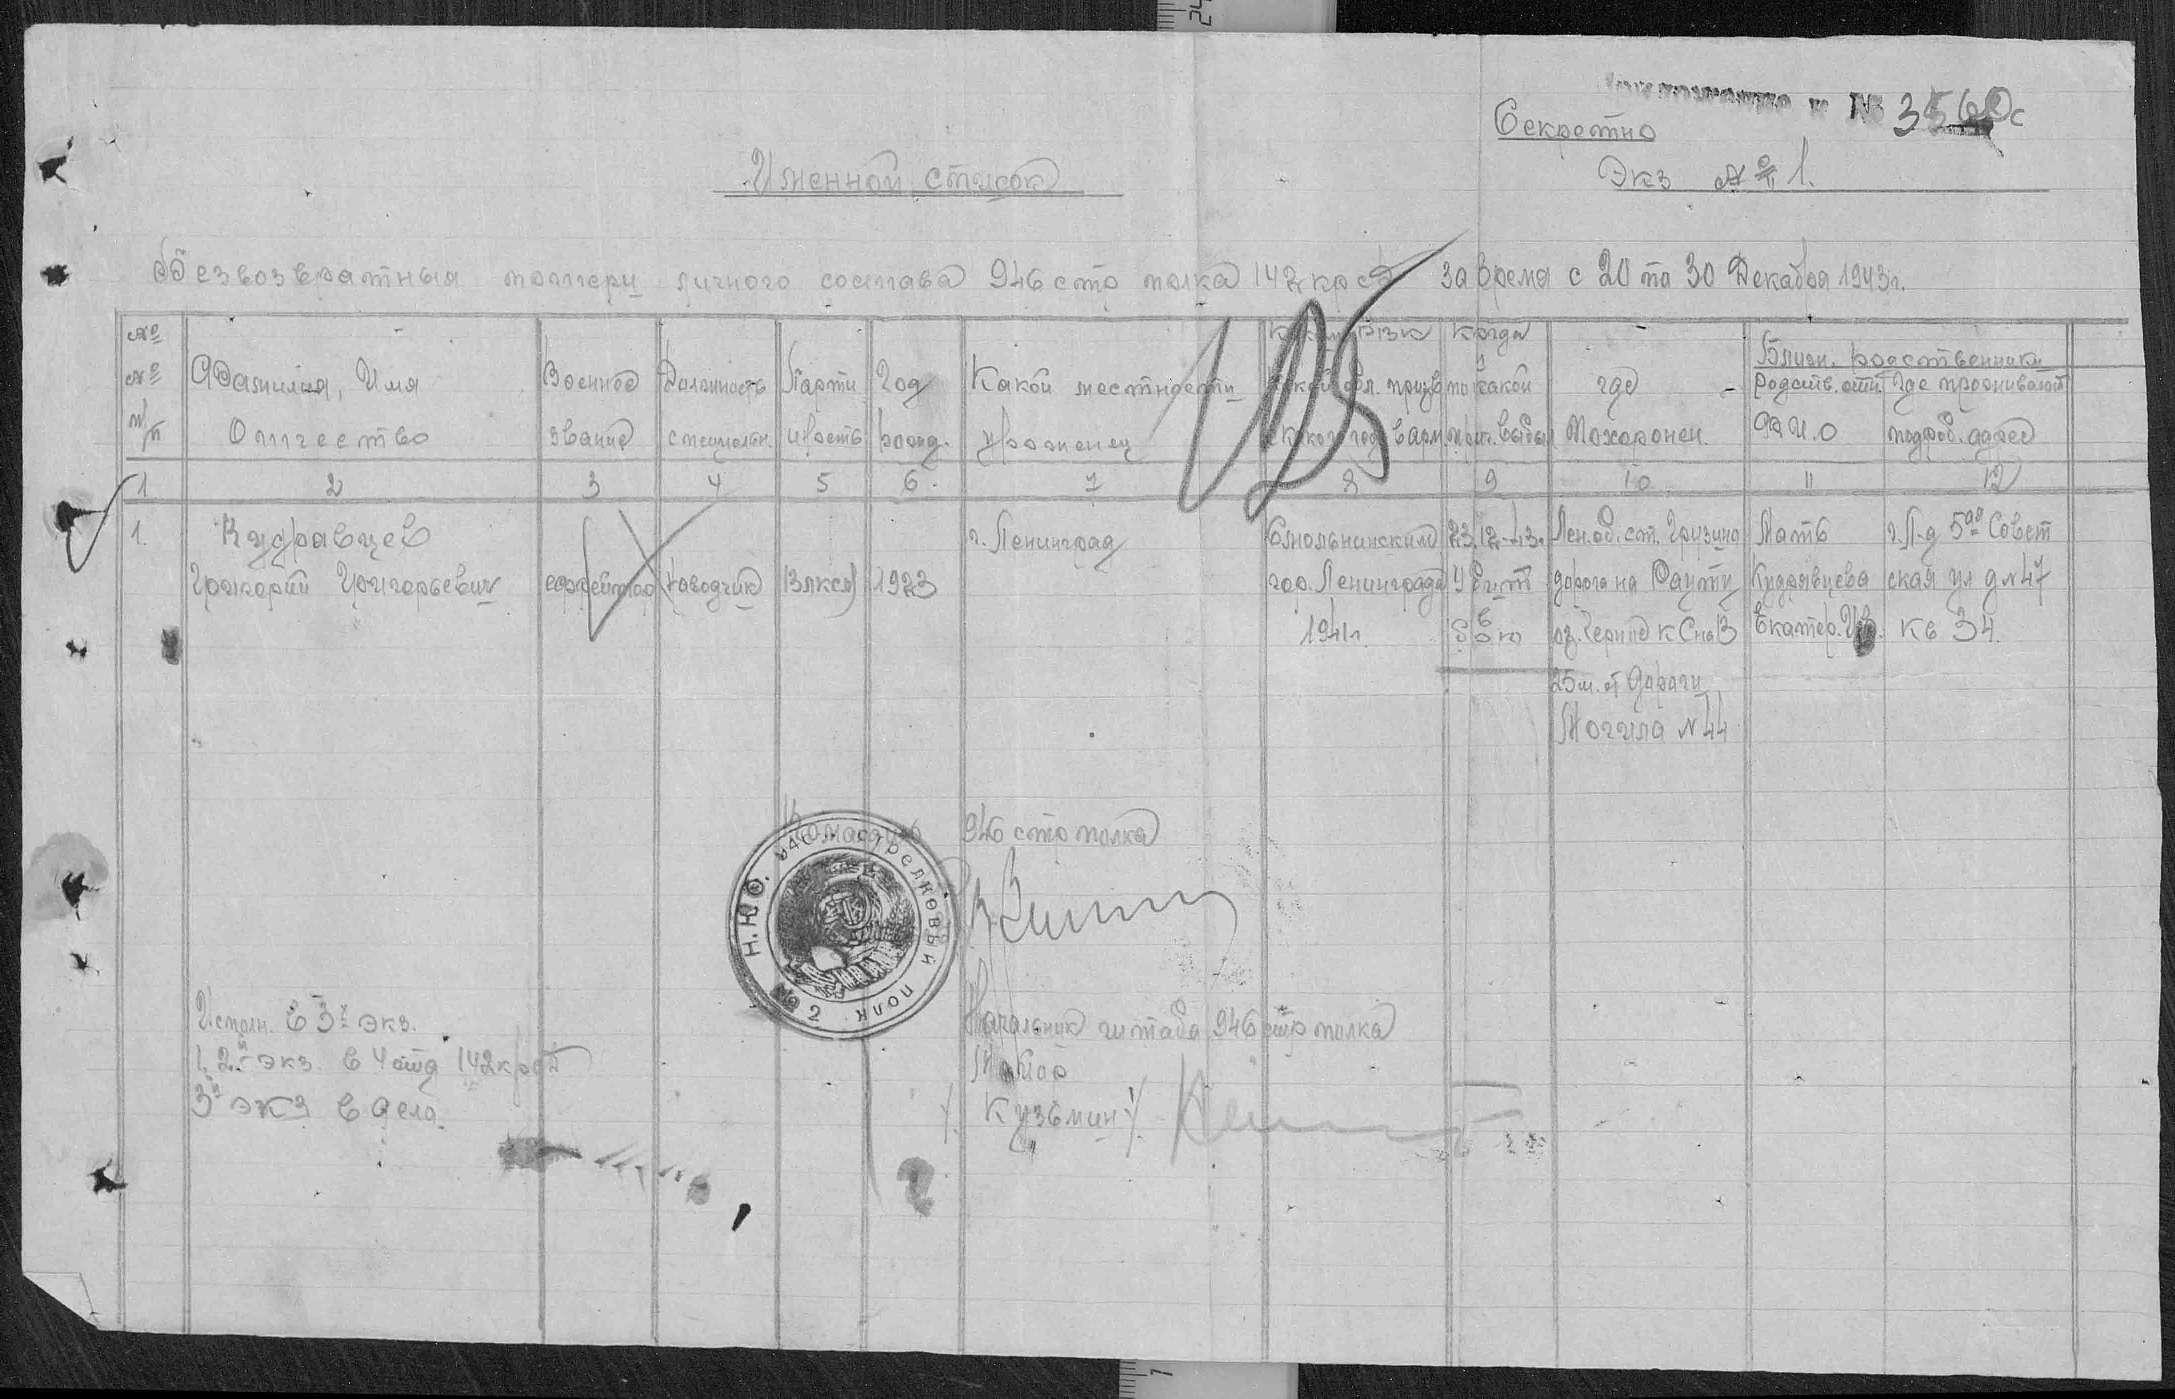 № 3560с
Секретно
Экз № 1.
Именной список
безвозвратных потери личного состава 946 стр полка 142 крсд за время с 20 по 30 Декабря 1943г.
№ № п/п
Фамилия, Имя Отчество
Военное звание
Должность специальн.
Парти йность
Год рожд.
Какой местности уроженец
Каким РВК какой обл. призв в каком году в арм.
Когда и по какой прич. выбыл
где Похоронен
Ближ. родственники
Родств. отн. Ф И.О
Где проживают подроб. адрес
1 2 3 4 5 6. 7 8 9 10 11 12
1. Кудравцев г. Ленинград Смольнинским 23.12.43г. Лен.об. ст. Грузино Мать г. Л-д 5ая Совет
Григорий Григорьевич ефрейтор наводчик ВЛКСМ 1923 гор. Ленинграда Убит дорога на Рауту Кудрявцева ская ул д № 47
1941г. в бою оз. Екатер. Ив. кв 34.
25 м. от дороги
Могила № 44
946 стр полка
Н.К.О. 946 стрелковый полк № 2
Начальник штаба 946 стр полка
Майор
/Кузьмин/
Исполн. в 3х экз.
1, 2й экз. в 4 отд 142 крсд
3й экз в дело.